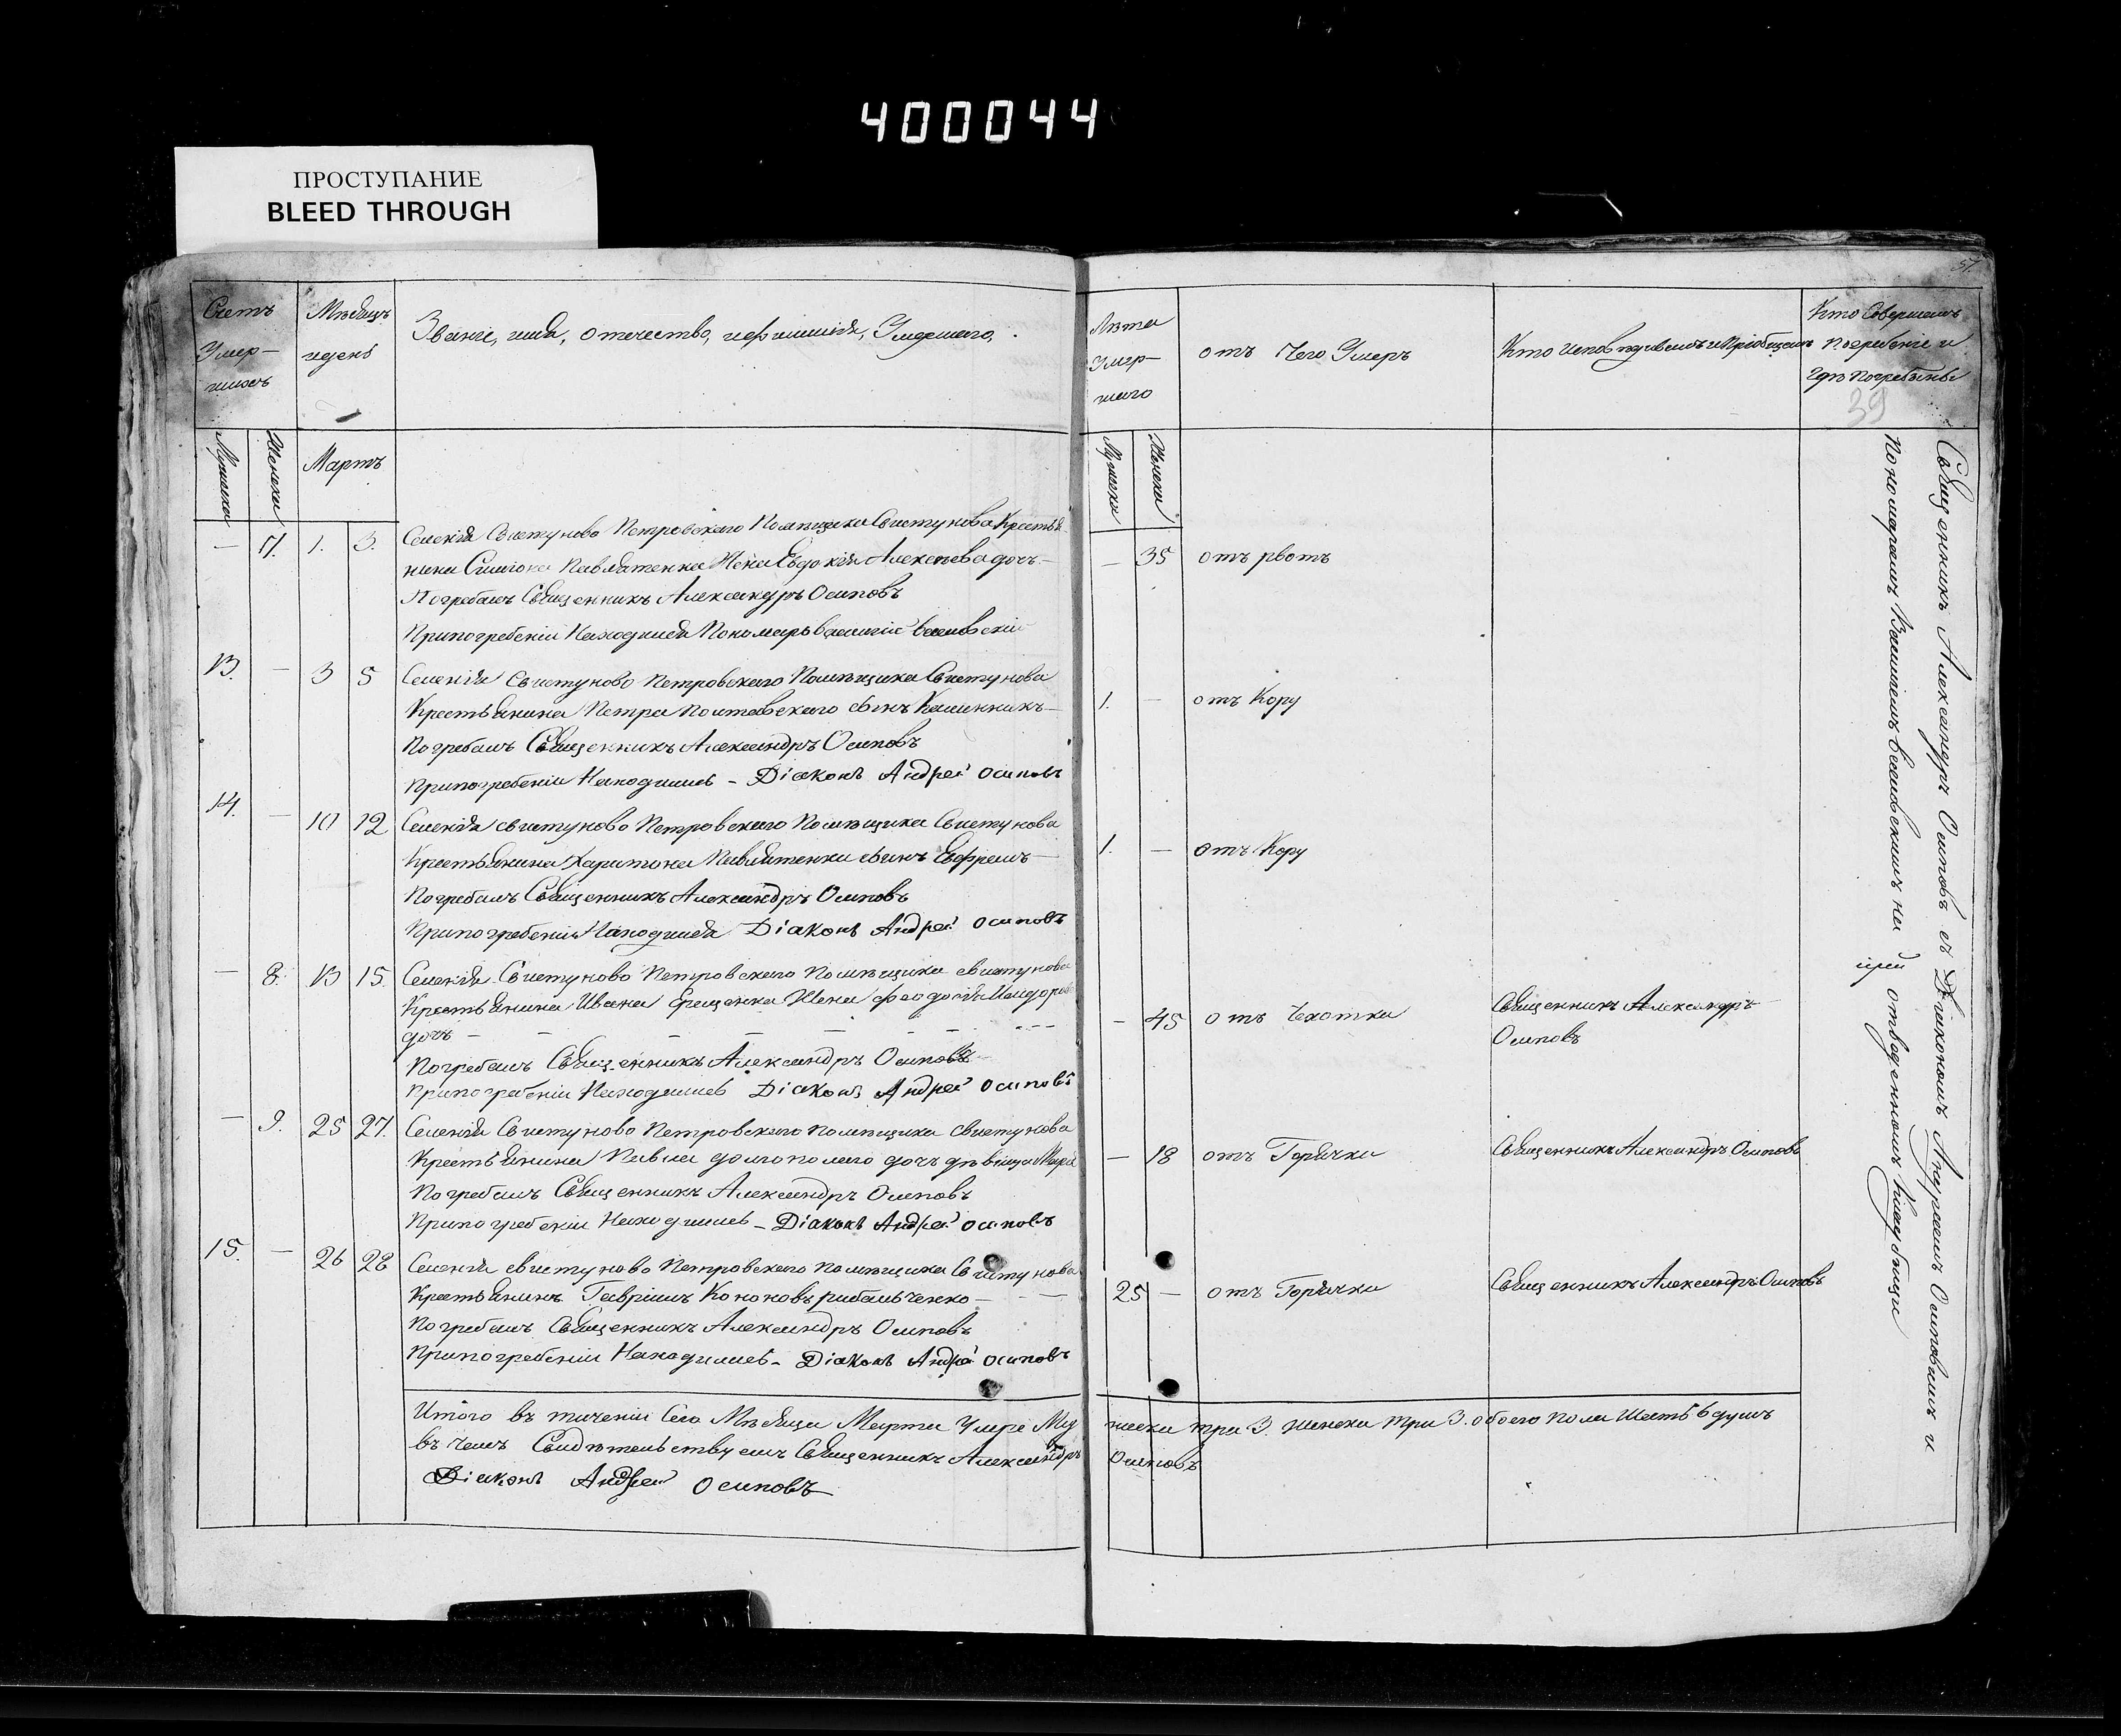 400044
ПРОСТУПАНИЕ
BLEED THROUGH
57.
Счетъ Умер-шихъ
Мѣсяцъ и день
Званіе, имя, отечество, и фамиллія, Умершаго.
Лѣта Умер-шаго
отъ Чего Умеръ
Кто исповѣдывалъ и Пріобщалъ
Кто Совершалъ погребеніе и Гдѣ погребены
39
Мужеска
Женска
Мартъ
Мужеска
Женска
— 7. 1. 3. Селенія Свистуново Петровскаго Помѣщика Свистунова Крестья-
нина Симеона Павлятенка Жена Евдокія Алексѣева дочь —
Погребалъ Священникъ Александръ Осиповъ
При погребеніи Находился Пономарь Василій
— 35 отъ рвотъ
13. — 3 5 Селенія Свистуново Петровскаго Помѣщика Свистунова
Крестьянина Петра Полтавскаго сынъ Калинникъ —
Погребалъ Священникъ Александръ Осиповъ
При погребеніи Находились — Діаконъ Андрей Осиповъ
1. — отъ Кору
14. — 10 12 Селенія Свистуново Петровскаго Помѣщика Свистунова
Крестьянина Харитона Павлятенки сынъ Ефремъ —
Погребалъ Священникъ Александръ Осиповъ
При погребеніи Находился Діаконъ Андрей Осиповъ
1. — отъ Кору
— 8. 13 15. Селенія Свистуново Петровскаго Помѣщика Свистунова
Крестьянина Ивана Грищенка Жена Феодосія
дочь — — — — — —
Погребалъ Священникъ Александръ Осиповъ
При погребеніи Находились Діаконъ Андрей Осиповъ
— 45 отъ Чахотки Священникъ Александръ
Осиповъ
— 9. 25 27. Селенія Свистуново Петровскаго помѣщика Свистунова
Крестьянина Павла Долгополаго дочь дѣвица
Погребалъ Священникъ Александръ Осиповъ
При погребеніи Находились — Діаконъ Андрей Осиповъ
— 18 отъ Горячки Священникъ Александръ Осиповъ
15. — 26 28 Селенія Свистуново Петровскаго помѣщика Свистунова
Крестьянинъ Гавріилъ Кононовъ рибальченко —
Погребалъ Священникъ Александръ Осиповъ
При погребеніи Находились — Діаконъ Андрей Осиповъ
25 — отъ Горячки Священникъ Александръ Осиповъ
Итого въ теченіи Сего Мѣсяца Марта Умре Муж жеска три 3. женска три 3. обоего пола Шесть 6 душъ
въ чемъ Свидѣтельствуемъ Священникъ Александръ Осиповъ
Діаконъ Андрей Осиповъ
Священникъ Александръ Осиповъ съ Діакономъ Андреемъ Осиповымъ и
Пономаремъ Василіемъ на отведенномъ кладбищи